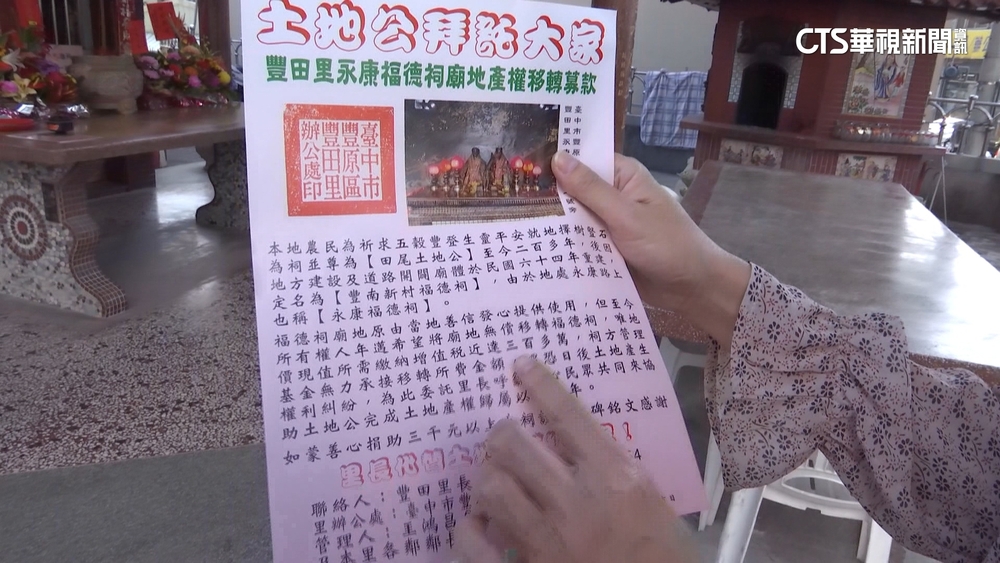 CTS華視新聞資訊
土地公拜託大家
豐田里永康福德祠廟地產權移轉募款
臺中市
豐原區
豐田里
辦公處印
臺中市豐原
豐田里永
本地農民為祈求五穀豐登生靈平安就地擇樹豎石
為祠並尊為【田尾土地公】至今二百多年，後因
地方建設及道路開闢廟體於民國六十四年重建，
定名為【豐南新村福德祠】，由於地處永康路上
也稱【永康福德祠】。
福德祠廟地原由當地善信發心提供使用，但至今
所有權人年邁希望將廟地無償移轉福德祠，唯地
價現值所需繳納增值稅近達三百多萬，祠方管理
基金無力承接移轉所費金額 恐日後土地產生
權利糾紛，為此委託里長呼 民眾共同來協
助土地公完成土地產權歸屬以 年。
如蒙善心捐助三千元以上 祠 碑銘文感謝
里長 ！
聯絡人：豐田里長
里辦公處：臺中市
管理人：鴻
各鄰鄰